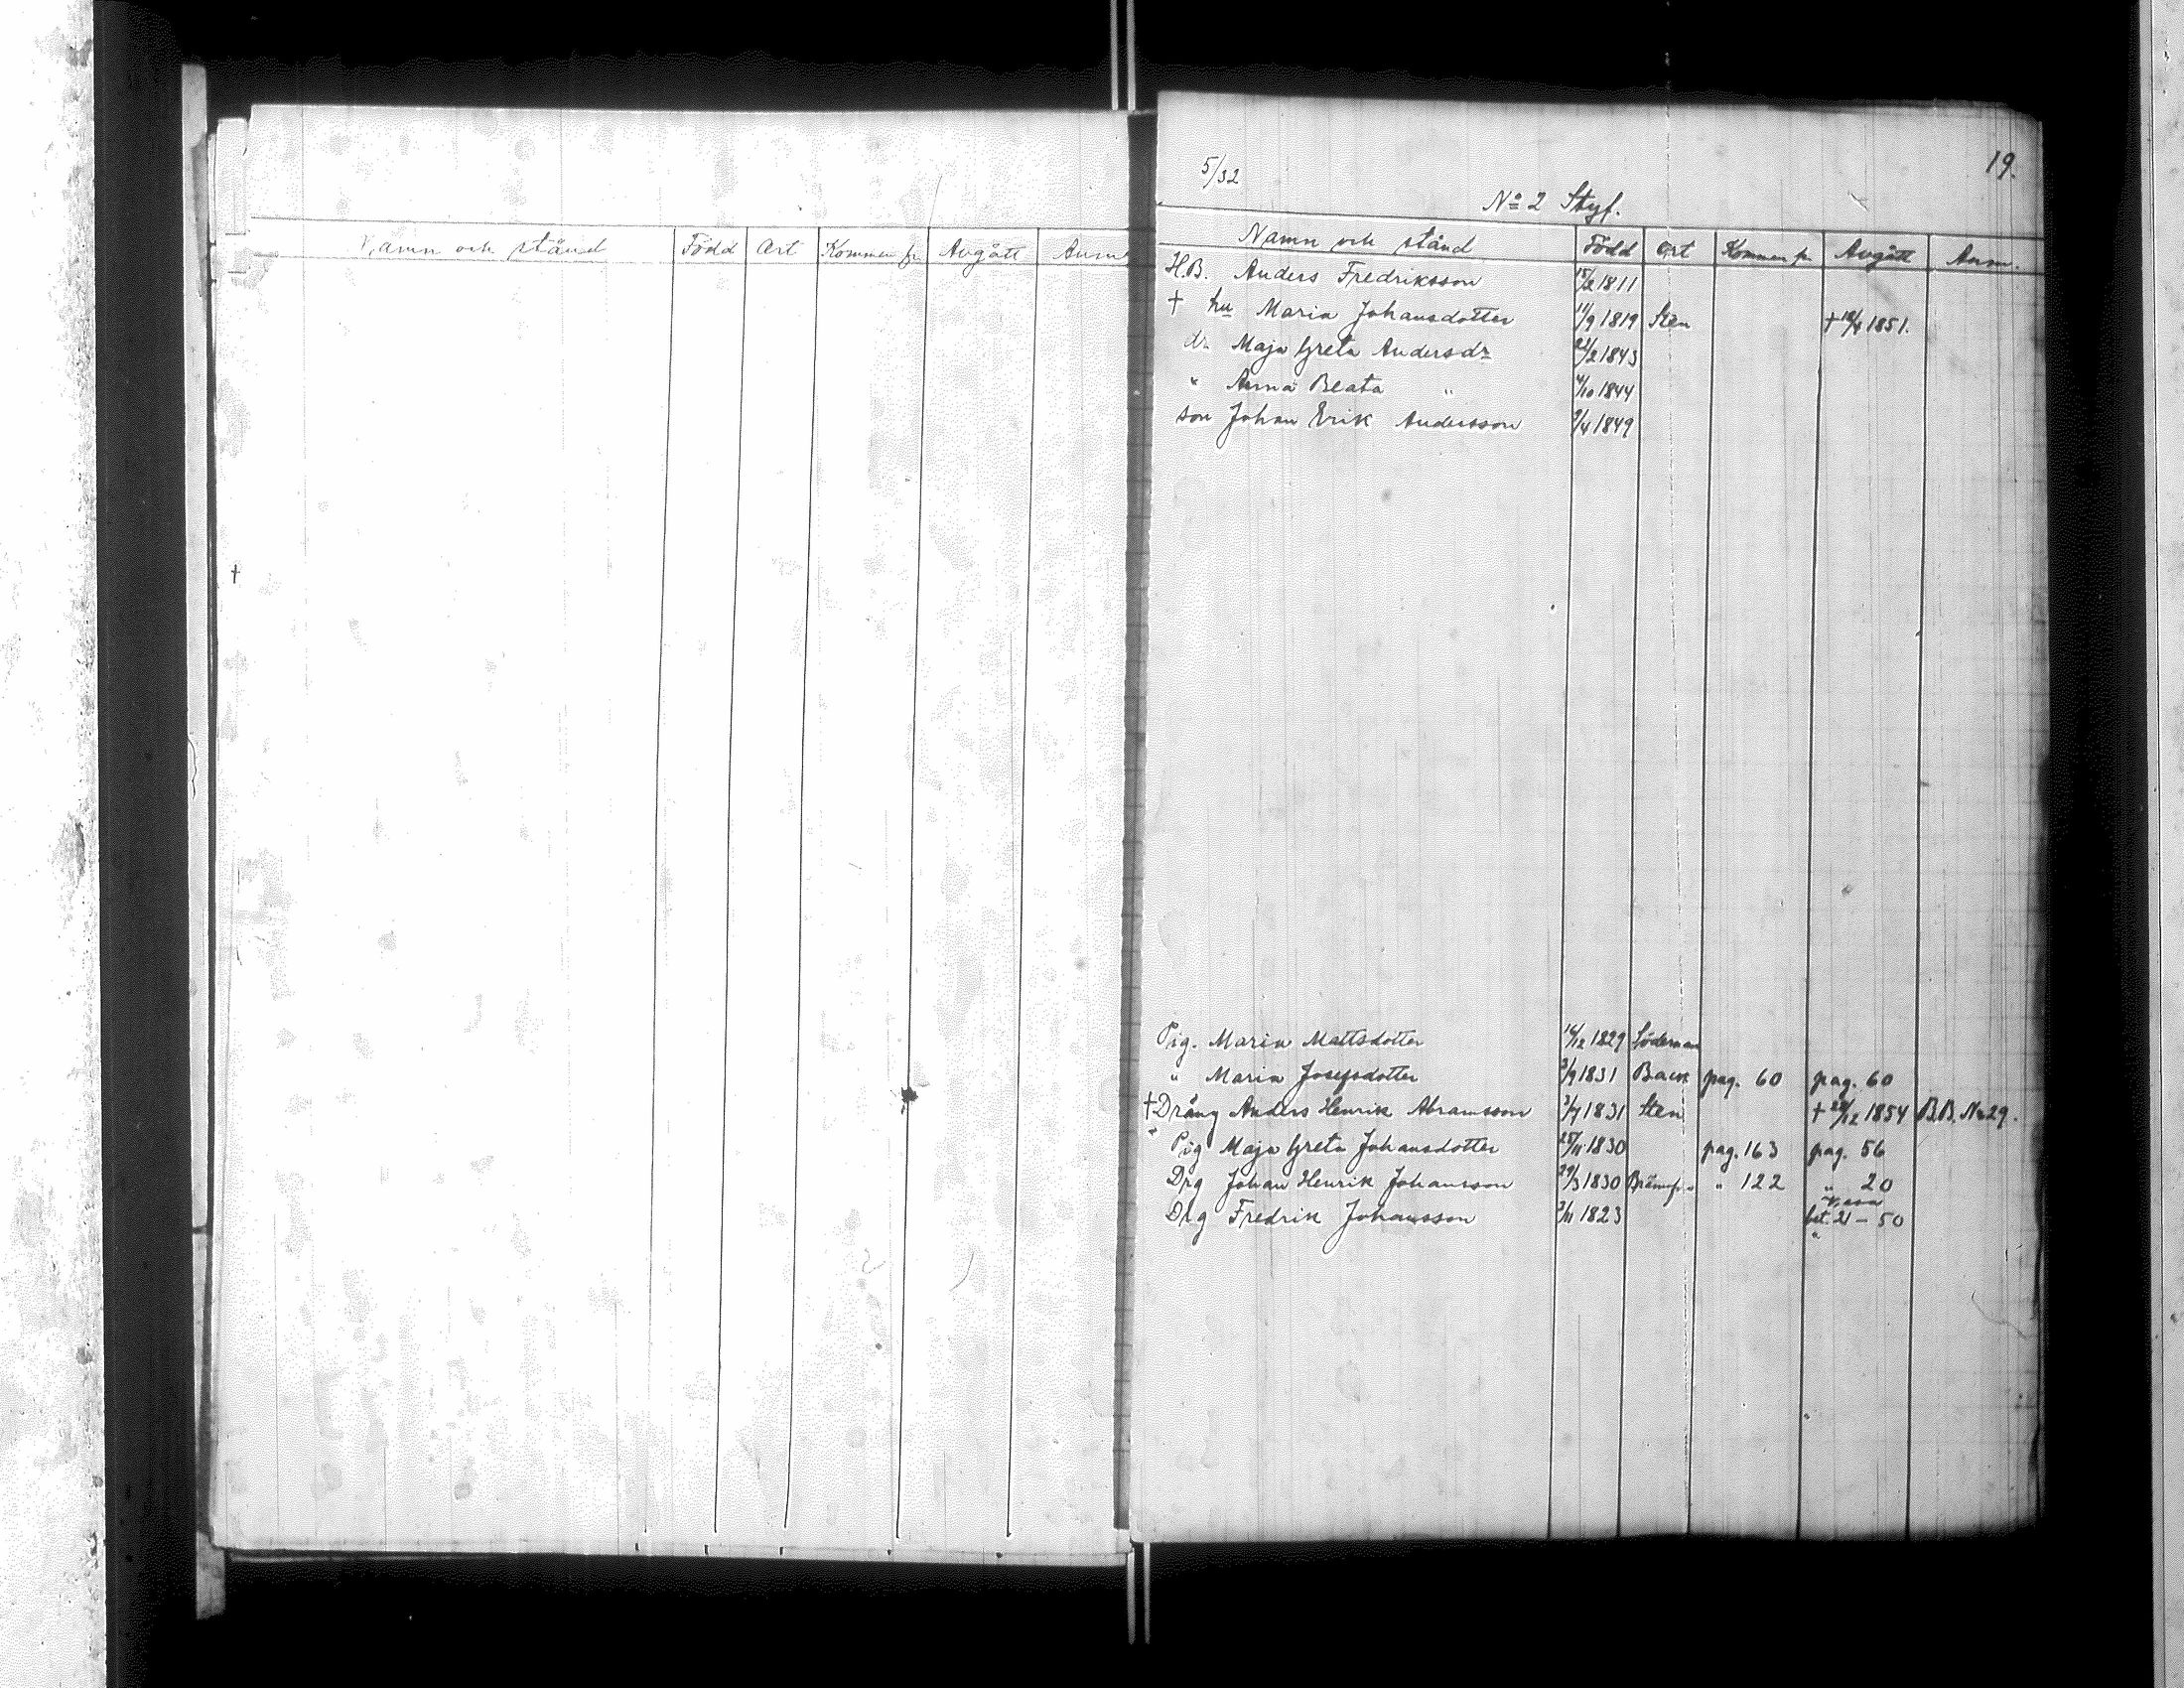 Namn och stånd Född Ort Kommen fr Avgått Anm
†
19.
5/32
No 2 Styf.
Namn och stånd Född Ort Kommen fr Avgått Anm.
H.B. Anders Fredriksson 15/2 1811
† hu Maria Johansdotter 11/9 1819 Sten † 1851.
dr Maja Greta Andersdr 22/2 1843
" Anna Beata " 4/10 1844
son Johan Erik Andersson 9/4 1849
Pig. Maria Mattsdotter 16/12 1829 Söderman
" Maria Josefsdotter 3/9 1831 Back pag. 60 pag. 60
† Dräng Anders Henrik Abramsson 3/7 1831 Sten † 1854 B.B. No 29.
Pig Maja Greta Johansdotter 25/11 1830 pag. 163 pag. 56
Drg Johan Henrik Johansson 29/3 1830 " 122 " 20
Drg Fredrik Johansson 3/11 1823 bet. 21 — 50